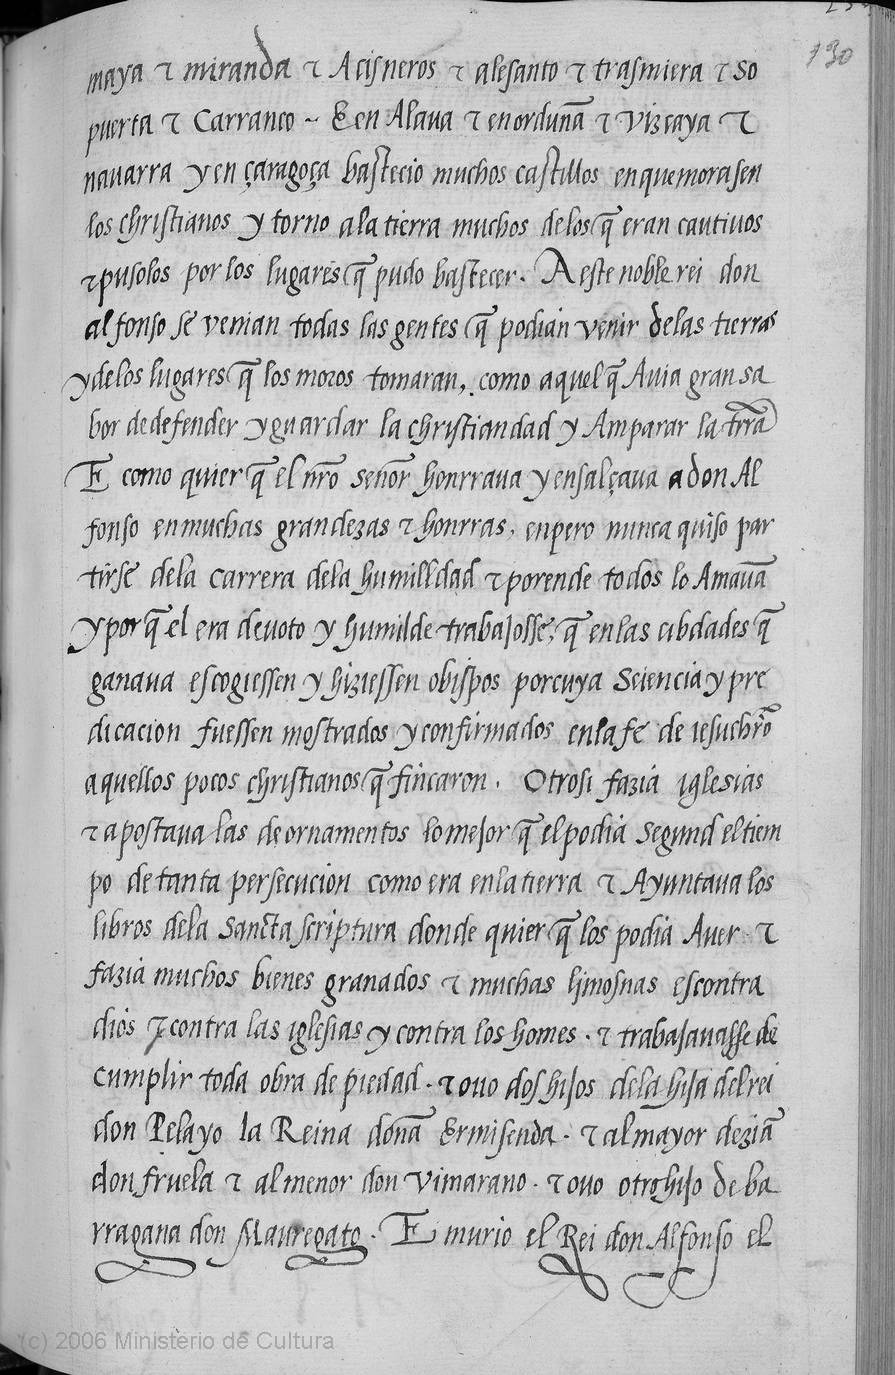 130
maya ⁊ miranda ⁊ Acisneros ⁊ alesanto ⁊ trasmiera ⁊ so
puerta ⁊ Carranco ~ E en Alaua ⁊ enorduña ⁊ Vizcaya ⁊
nauarra y en çaragoça bastecio muchos castillos enquemorasen
los christianos y torno ala tierra muchos delos q̃ eran cautiuos
⁊ pusolos por los lugares q̃ pudo bastecer. A este noble rei don
alfonso se venian todas las gentes q̃ podian venir delas tierras
y delos lugares q̃ los moros tomaran, como aquel q̃ Auia gran sa
bor dedefender y guardar la christiandad y Amparar la trr̃a
E como quier q̃ el nr̃o señor honrraua y ensalçaua a don Al
fonso enmuchas grandezas ⁊ honrras, enpero nunca quiso par
tirse dela carrera dela humilldad ⁊ porende todos lo Amauã
y por q̃ el era deuoto y humilde trabajosse, q̃ enlas cibdades q̃
ganaua escogiessen y hiziessen obispos porcuya Sciencia y pre
dicacion fuessen mostrados y confirmados enla fe de iesuchr̃o
aquellos pocos christianos q̃ fincaron. Otrosi fazia iglesias
⁊ apostaua las de ornamentos lo mejor q̃ el podia segund el tiem
po de tanta persecucion como era enla tierra ⁊ Ayuntaua los
libros dela Sancta scriptura donde quier q̃ los podia Auer ⁊
fazia muchos bienes granados ⁊ muchas limosnas escontra
dios ⁊ contra las iglesias y contra los homes. ⁊ trabajauasse de
cumplir toda obra de piedad. ⁊ ouo dos hijos dela hija del rei
don Pelayo la Reina doña Ermisenda. ⁊ al mayor deziã
don fruela ⁊ al menor don Vimarano. ⁊ ouo otro hijo de ba
rragana don Mauregato. E murio el Rei don Alfonso el
(c) 2006 Ministerio de Cultura